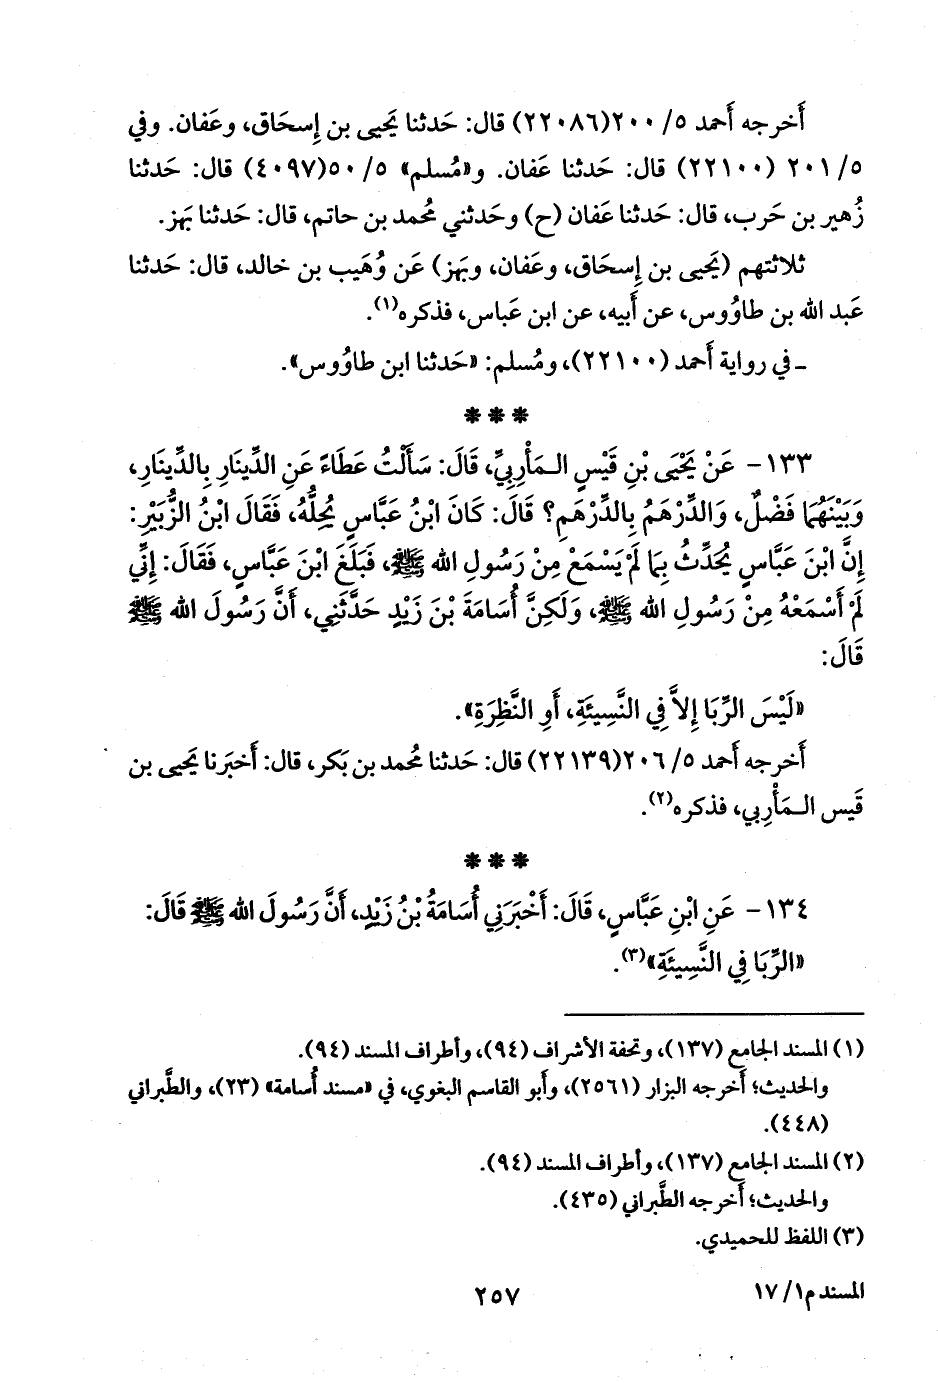 أَخرجه أَحمد ٥/ ٢٠٠(٢٢٠٨٦) قال: حَدثنا يَحيى بن إِسحَاق، وعَفان. وفي
٥/ ٢٠١ (٢٢١٠٠) قال: حَدثنا عَفان. و«مُسلم» ٥/ ٥٠(٤٠٩٧) قال: حَدثنا
زُهير بن حَرب، قال: حَدثنا عَفان (ح) وحَدثني مُحمد بن حاتم، قال: حَدثنا بَهز.
ثلاثتهم (يَحيى بن إِسحَاق، وعَفان، وبَهز) عَن وُهَيب بن خالد، قال: حَدثنا
عَبد الله بن طاوُوس، عن أَبيه، عن ابن عَباس، فذكره(١).
ـ في رواية أَحمد (٢٢١٠٠)، ومُسلم: «حَدثنا ابن طاوُوس».
* * *
١٣٣- عَنْ يَحْيَى بْنِ قَيْسٍ الـمَأْرِبِيِّ، قَالَ: سَأَلْتُ عَطَاءً عَنِ الدِّينَارِ بِالدِّينَارِ،
وَبَيْنَهُمَا فَضْلٌ، وَالدِّرْهَمُ بِالدِّرْهَمِ؟ قَالَ: كَانَ ابْنُ عَبَّاسٍ يُحِلُّهُ، فَقَالَ ابْنُ الزُّبَيْرِ:
إِنَّ ابْنَ عَبَّاسٍ يُحَدِّثُ بِمَا لَمْ يَسْمَعْ مِنْ رَسُولِ الله ﷺ، فَبَلَغَ ابْنَ عَبَّاسٍ، فَقَالَ: إِنِّي
لَمْ أَسْمَعْهُ مِنْ رَسُولِ الله ﷺ، وَلَكِنَّ أُسَامَةَ بْنَ زَيْدٍ حَدَّثَنِي، أَنَّ رَسُولَ الله ﷺ
قَالَ:
«لَيْسَ الرِّبَا إِلاَّ فِي النَّسِيئَةِ، أَوِ النَّظِرَةِ».
أَخرجه أَحمد ٥/ ٢٠٦(٢٢١٣٩) قال: حَدثنا مُحمد بن بَكر، قال: أَخبَرنا يَحيى بن
قَيس الـمَأْرِبي، فذكره(٢).
* * *
١٣٤- عَنِ ابْنِ عَبَّاسٍ، قَالَ: أَخْبَرَنِي أُسَامَةُ بْنُ زَيْدٍ، أَنَّ رَسُولَ الله ﷺ قَالَ:
«الرِّبَا فِي النَّسِيئَةِ»(٣).
(١) المسند الجامع (١٣٧)، وتحفة الأشراف (٩٤)، وأطراف المسند (٩٤).
والحديث؛ أَخرجه البزار (٢٥٦١)، وأَبو القاسم البغوي، في «مسند أُسامة» (٢٣)، والطَّبراني
(٤٤٨).
(٢) المسند الجامع (١٣٧)، وأطراف المسند (٩٤).
والحديث؛ أَخرجه الطَّبراني (٤٣٥).
(٣) اللفظ للحميدي.
المسند م١/ ١٧
٢٥٧